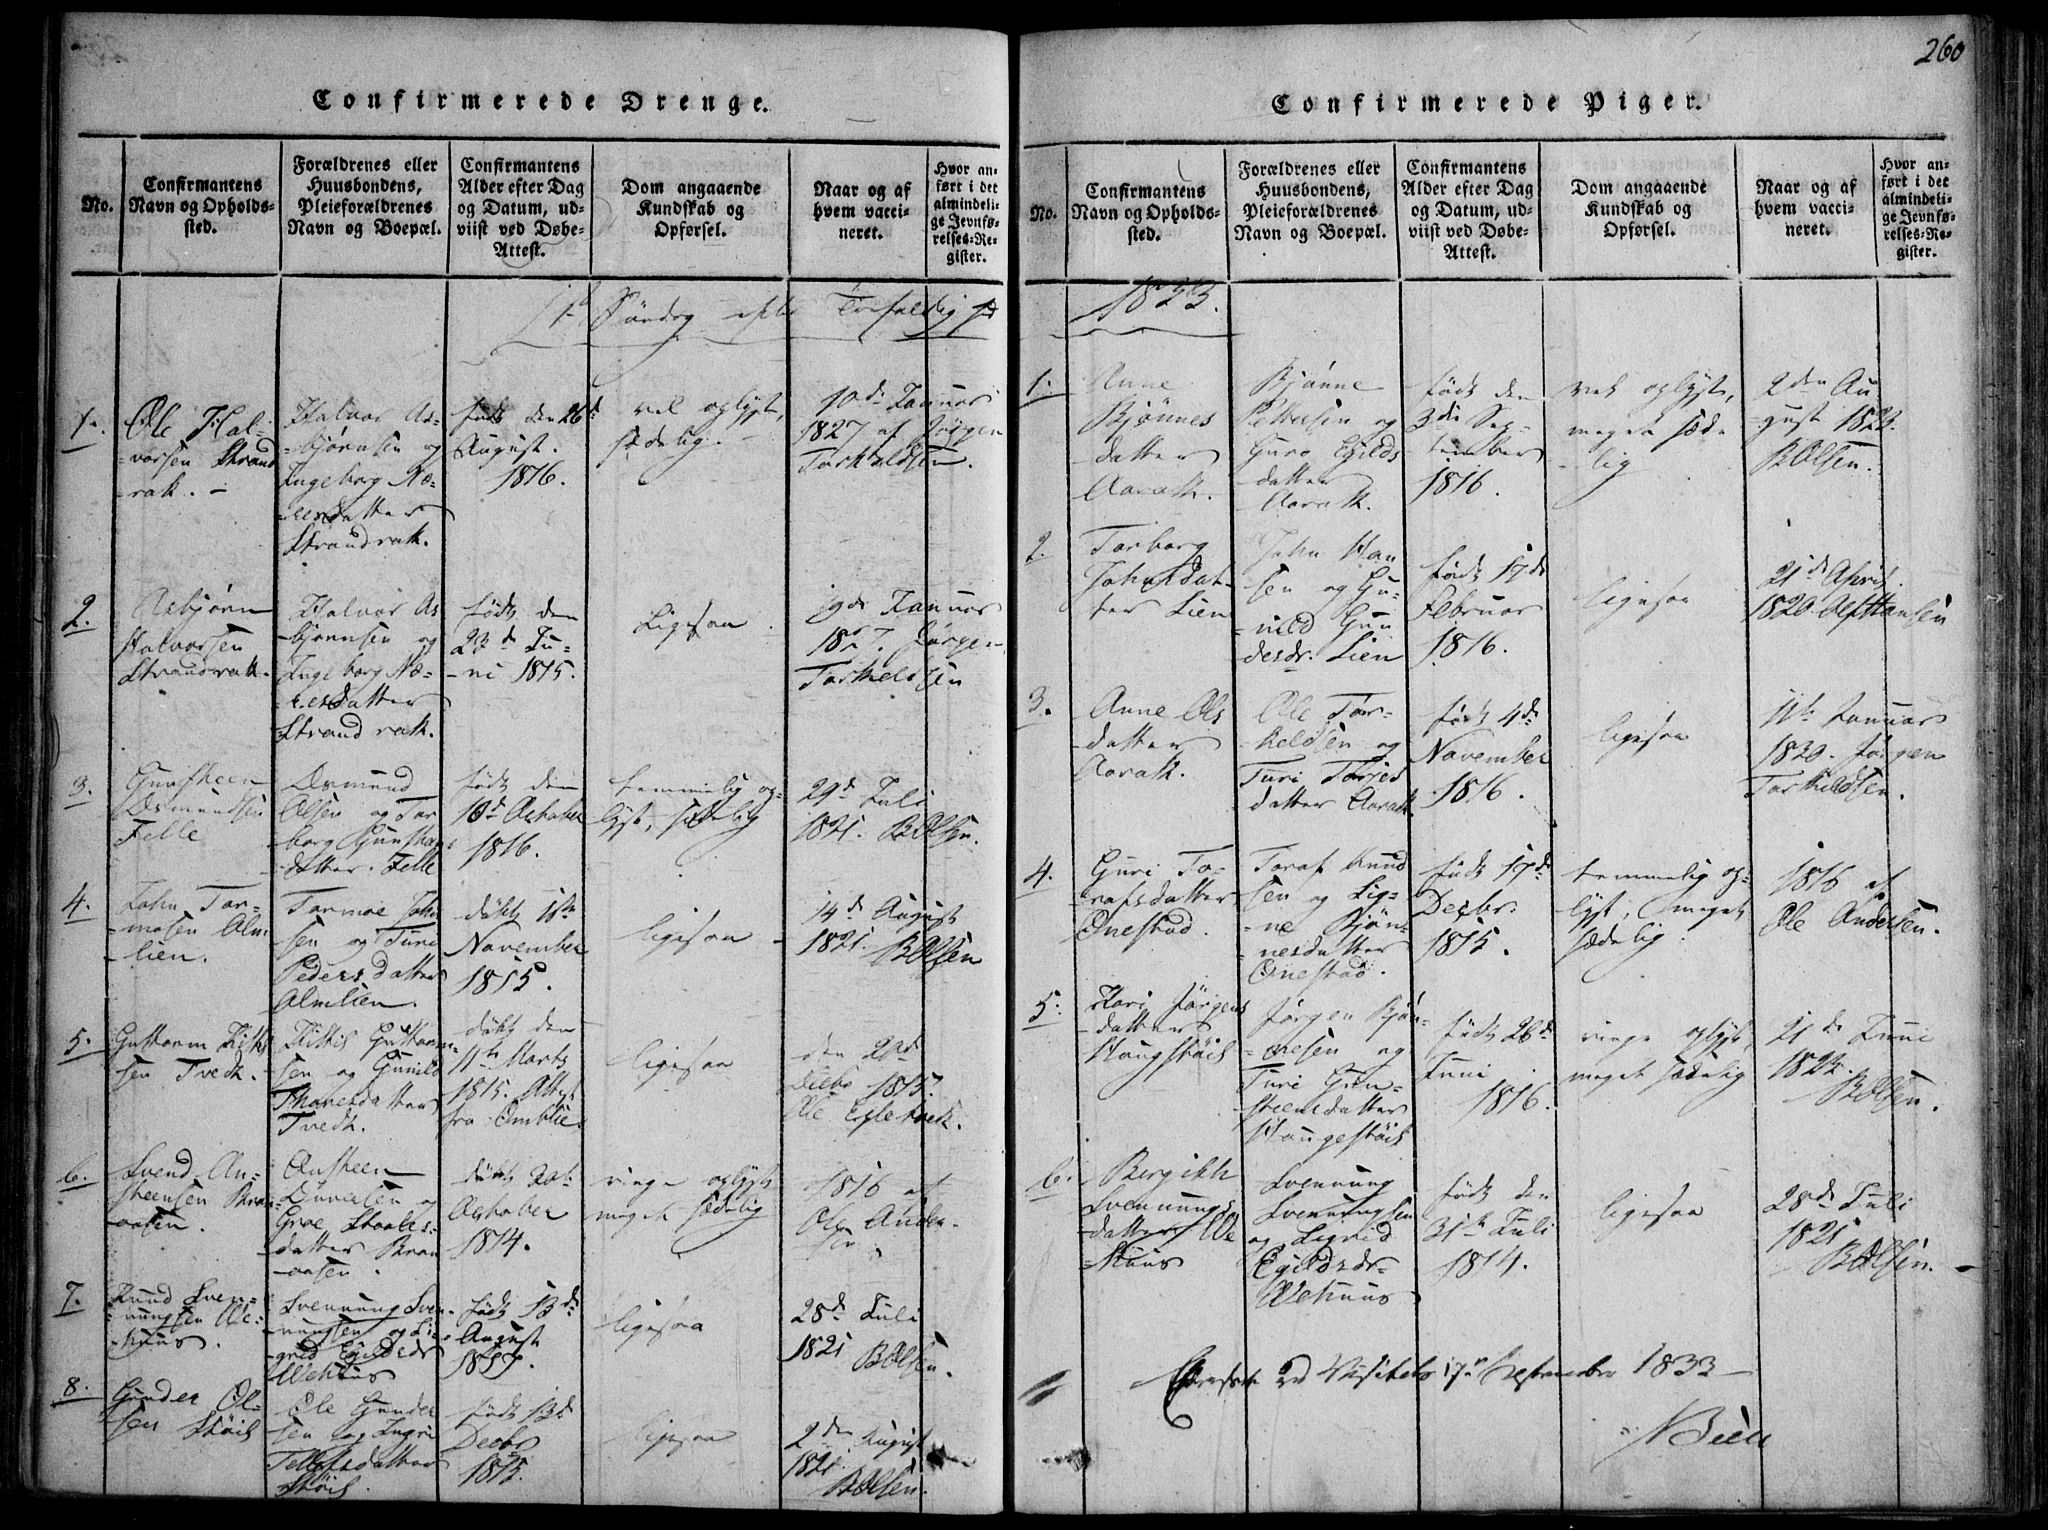 260
Confirmerede Drenge.
No.
Confirmantens
Navn og Opholds-
sted.
Forældrenes eller
Huusbondens,
Pleieforældrenes
Navn og Boepæl.
Confirmantens
Alder efter Dag
og Datum, ud-
viist ved Døbe-
Attest.
Dom angaaende
Kundskab og
Opførsel.
Naar og af
hvem vacci-
neret.
Hvor an-
ført i det
almindeli-
ge Jevnfø-
relses-Re-
gister.
Søndag efter Trefoldig
1.
Ole Hal-
-vorsen Strand
-rak. -
Halvor As-
-bjørnsen og
Ingeborg Næ-
-resdatter
Strandrak.
født den 26d
August.
1816.
vel oplyst,
sædelig. -
10de Januar
1827 af Jørgen
Torkeldsen.
2.
Asbjørn
Halvorsen
Strandrak.
Halvor As
-bjørnsen og
Ingeborg Næ-
-resdatter
Strandrak.
født den
23d Ju-
-ni 1815.
Ligesaa.
19de Januar
1827. Jørgen
Torkeldsen
3.
Gunsteen
Osmundsen
Felle
Osmund
Olsen og Tor
borg Gunsteen
datter. Felle
født den
10d October
1816.
temmelig op-
lyst, sædelig
29d Juli
1821. B Olsen.
4.
John Tor-
mosen Alm
-lien.
Tormoe John
sen og Turi
Pedersdatter
Almlien.
døbt 18th
November
1815.
ligesaa -
14d August
1821. B Olsen
5.
Guttorm Kittil
sen Tvedt.
Kittil Guttorm-
sen og Gunild
Thoresdatter
Tvedt.
døbt den
11th Marts
1815. Attest
fra Omblie.
ligesaa
den 22d
Decbr 1815.
Ole Eglestvedt.
6.
Svend An-
steensen Bra-
-aasen.
Ansteen
og
Groe
datter
-aasen.
døbt
October
1814.
ringe oplyst
meget sædelig
1816 af
Ole Ander-
sen
7.
Knud Sven-
-nungsen Ve-
huus.
Svennung Sven-
-nungsen og Si-
grid Egildsdr
Vehuus
født 13d
August
1817.
ligesaa
28d Juli
1821 B Olsen.
8.
Gunder Ol-
sen Støil
Ole Gunder
sen og Ingri
Tellefsdatter
Støil.
født 13d
Decbr
1815.
ligesaa
2den August
1821.
B Olsen.
Confirmerede Piger.
No.
Confirmantens
Navn og Opholds-
sted.
Forældrenes eller
Huusbondens,
Pleieforældrenes
Navn og Boepæl.
Confirmantens
Alder efter Dag
og Datum, ud-
viist ved Døbe-
Attest.
Dom angaaende
Kundskab og
Opførsel.
Naar og af
hvem vacci-
neret.
Hvor an-
ført i det
almindeli-
ge Jevnfø-
relses-Re-
gister.
1833.
1.
Anne
Bjønnes
datter
Aarak.
Bjønne
Pettersen og
Guro Egilds
datter
Aarak.
født den
3de Sep-
-tember
1816.
vel oplyst,
meget sæde
-lig
2den Au
gust 1822.
B Olsen.
2.
Torborg
Johnsdat-
ter Lien
John Han
sen og Gu-
-nild Gun
desdr. Lien
født 17de
Februar
1816.
ligesaa
21de April
1820. Ole Hansen
3.
Anne Ols
datter
Aarak.
Ole Tor-
-keldsen og
Turi Torjes
datter Aarak
født 4de
November
1816.
ligesaa
11te Januar
1830. Jørgen
Torkildsen.
4.
Guri To-
-rafsdatter
Onestad.
Toraf Knud
sen og Sig-
-ne Bjøn-
nesdatter
Onestad.
født 17de
Decbr:
1815.
temmelig op-
lyst, meget
sædelig.
1816 af
Ole Andersen.
5.
Kari Jørgens
datter
Haugstøil
Jørgen Bjøn-
-nesen og
Turi Gun-
steensdatter
Haugestøil
født 26de
Juni
1816.
ringe oplyst
meget sædelig
21de Juni
1822.
B Olsen.
6.
Bergitth
Svennungs
datter Ve
-huus
Svennung
Svennungsen
og Sigrid
Egildsdr-
Vehuus
født den
31th Juli
1814.
ligesaa
28de Juli
1821
B Olsen. -
Visitats 17n September 1833 -